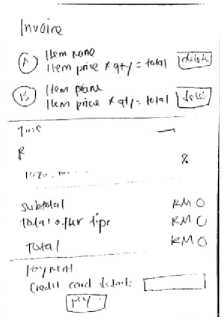 Invoice
A Item name
Item price x qty = total delete
B Item name
Item price x qty = total
%
Subtotal RM 0
Total after tips RM 0
Total RM 0
Payment
Credit card details
Pay